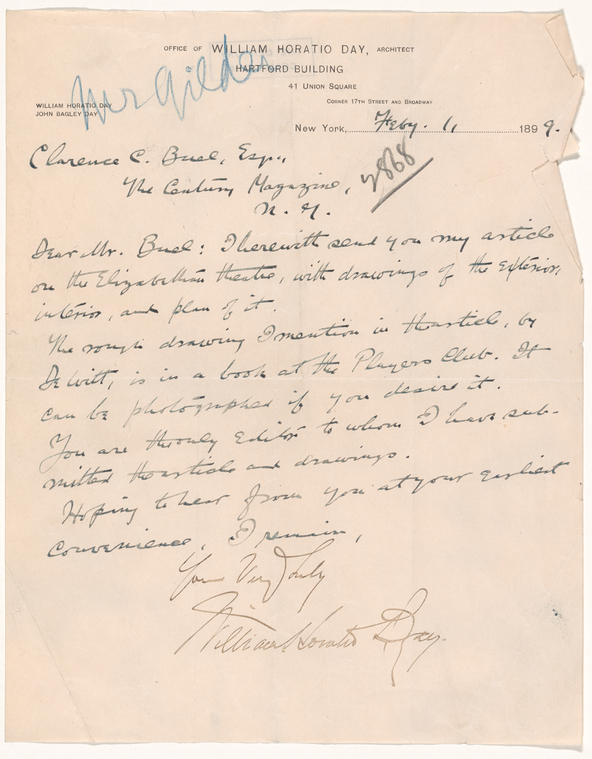 OFFICE OF WILLIAM HORATIO DAY, ARCHITECT
HARTFORD BUILDING
41 UNION SQUARE
CORNER 17TH STREET AND BROADWAY
Mr Gilder
WILLIAM HORATIO DAY
JOHN BAGLEY DAY
New York, Feby. 1, 1899.
Clarence C. Buel, Esq.,
The Century Magazine,
N. Y.
2868
Dear Mr. Buel: I herewith send you my article
on the Elizabethan theatre, with drawings of the exterior,
interior, and plan of it.
The rough drawing I mention in the article, by
De Witt, is in a book at the Players Club. It
can be photographed if you desire it.
You are the only Editor to whom I have sub-
mitted the article and drawings.
Hoping to hear from you at your earliest
convenience, I remain,
Yours Very Truly
William Horatio Day.